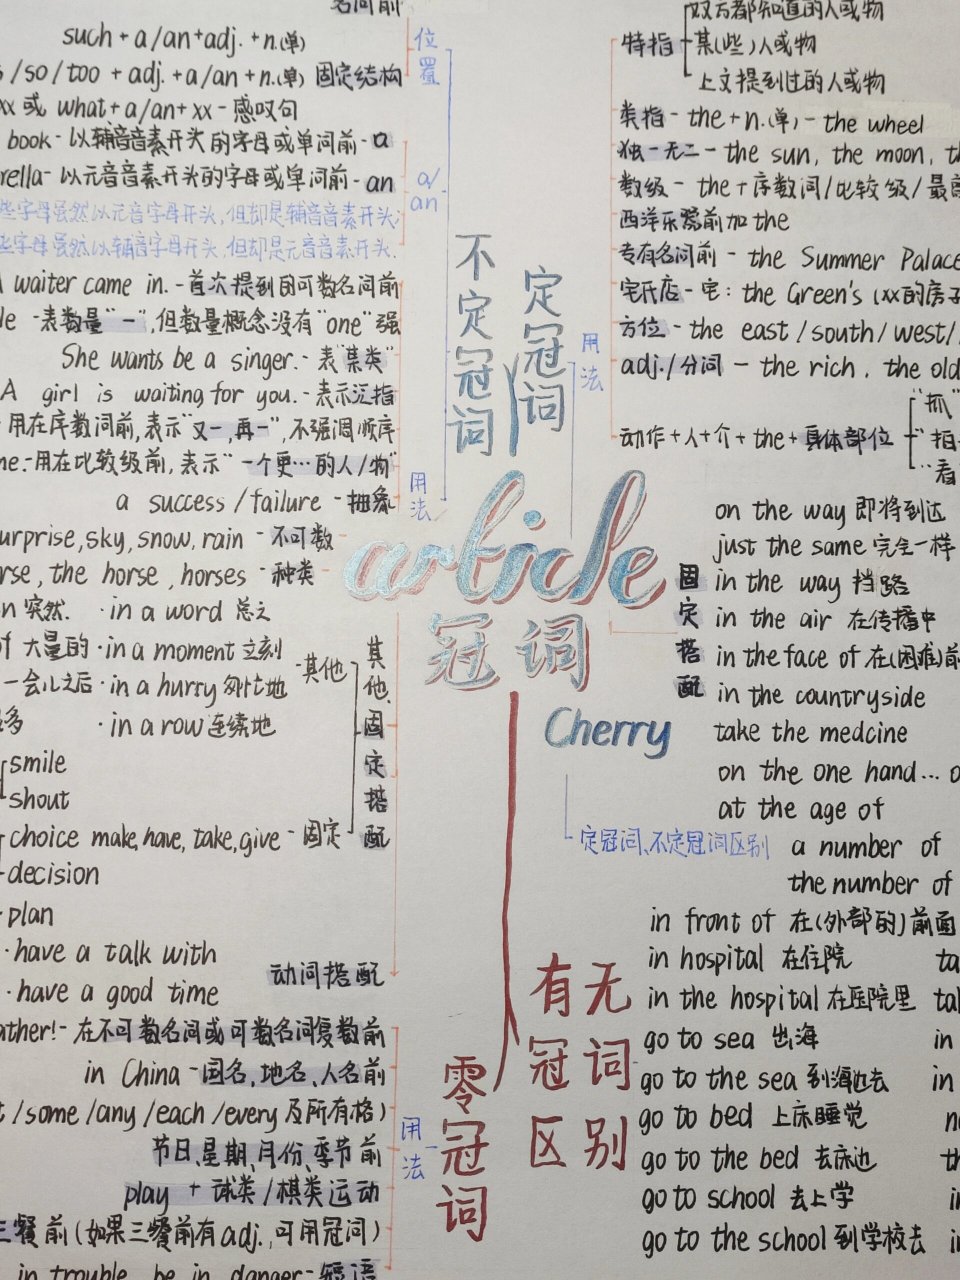 名词前
such + a/an+adj. + n.(单)
/so/too + adj. +a/an + n.(单) 固定结构
位置
xx 或 what+a/an+ xx - 感叹句
book - 以辅音音素开头的字母或单词前 - a
rella - 以元音音素开头的字母或单词前 - an
a/an
些字母虽然以元音字母开头,但却是辅音音素开头.
些字母虽然以辅音字母开头,但却是元音音素开头.
waiter came in. - 首次提到的可数名词前
le - 表数量"一",但数量概念没有"one"强
She wants be a singer. - 表"某类"
A girl is waiting for you. - 表示泛指
用在序数词前,表示"又一,再一",不强调顺序
ne. - 用在比较级前,表示"一个更…的人/物"
a success / failure - 抽象
用法
urprise, sky, snow, rain - 不可数
rse, the horse, horses - 种类
n 突然. · in a word 总之
of 大量的 · in a moment 立刻
一会儿之后 · in a hurry 匆忙地
多 · in a row 连续地
- 其他
smile
shout
choice make, have, take, give - 固定
decision
plan
· have a talk with
· have a good time
动词搭配
其他固定搭配
不定冠词
定冠词
用法
双方都知道的人或物
特指 某(些)人或物
上文提到过的人或物
类指 - the + n.(单) - the wheel
独一无二 - the sun, the moon, th
数级 - the + 序数词/比较级/最高
西洋乐器前加 the
专有名词前 - the Summer Palace
宅氏店 - 宅: the Green's (xx的房子
方位 - the east / south / west /
adj./分词 - the rich, the old
动作+人+介+the+身体部位
"抓"
"拍
"看
article
冠词
Cherry
固定搭配
on the way 即将到达
just the same 完全一样
in the way 挡路
in the air 在传播中
in the face of 在(困难)前
in the countryside
take the medcine
on the one hand... o
at the age of
定冠词、不定冠词区别
a number of
the number of
有无冠词区别
in front of 在(外部的)前面
in hospital 在住院
in the hospital 在医院里
go to sea 出海
go to the sea 到海边去
go to bed 上床睡觉
go to the bed 去床边
go to school 去上学
go to the school 到学校去
ta
tal
in
in
n
th
in
in
零冠词
用法
ather! - 在不可数名词或可数名词复数前
in China - 国名,地名,人名前
t /some /any /each /every 及所有格)
节日、星期、月份、季节前
play + 球类/棋类运动
三餐前(如果三餐前有adj.,可用冠词)
in trouble, be in danger - 短语